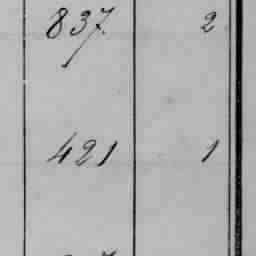 837 2
421 1